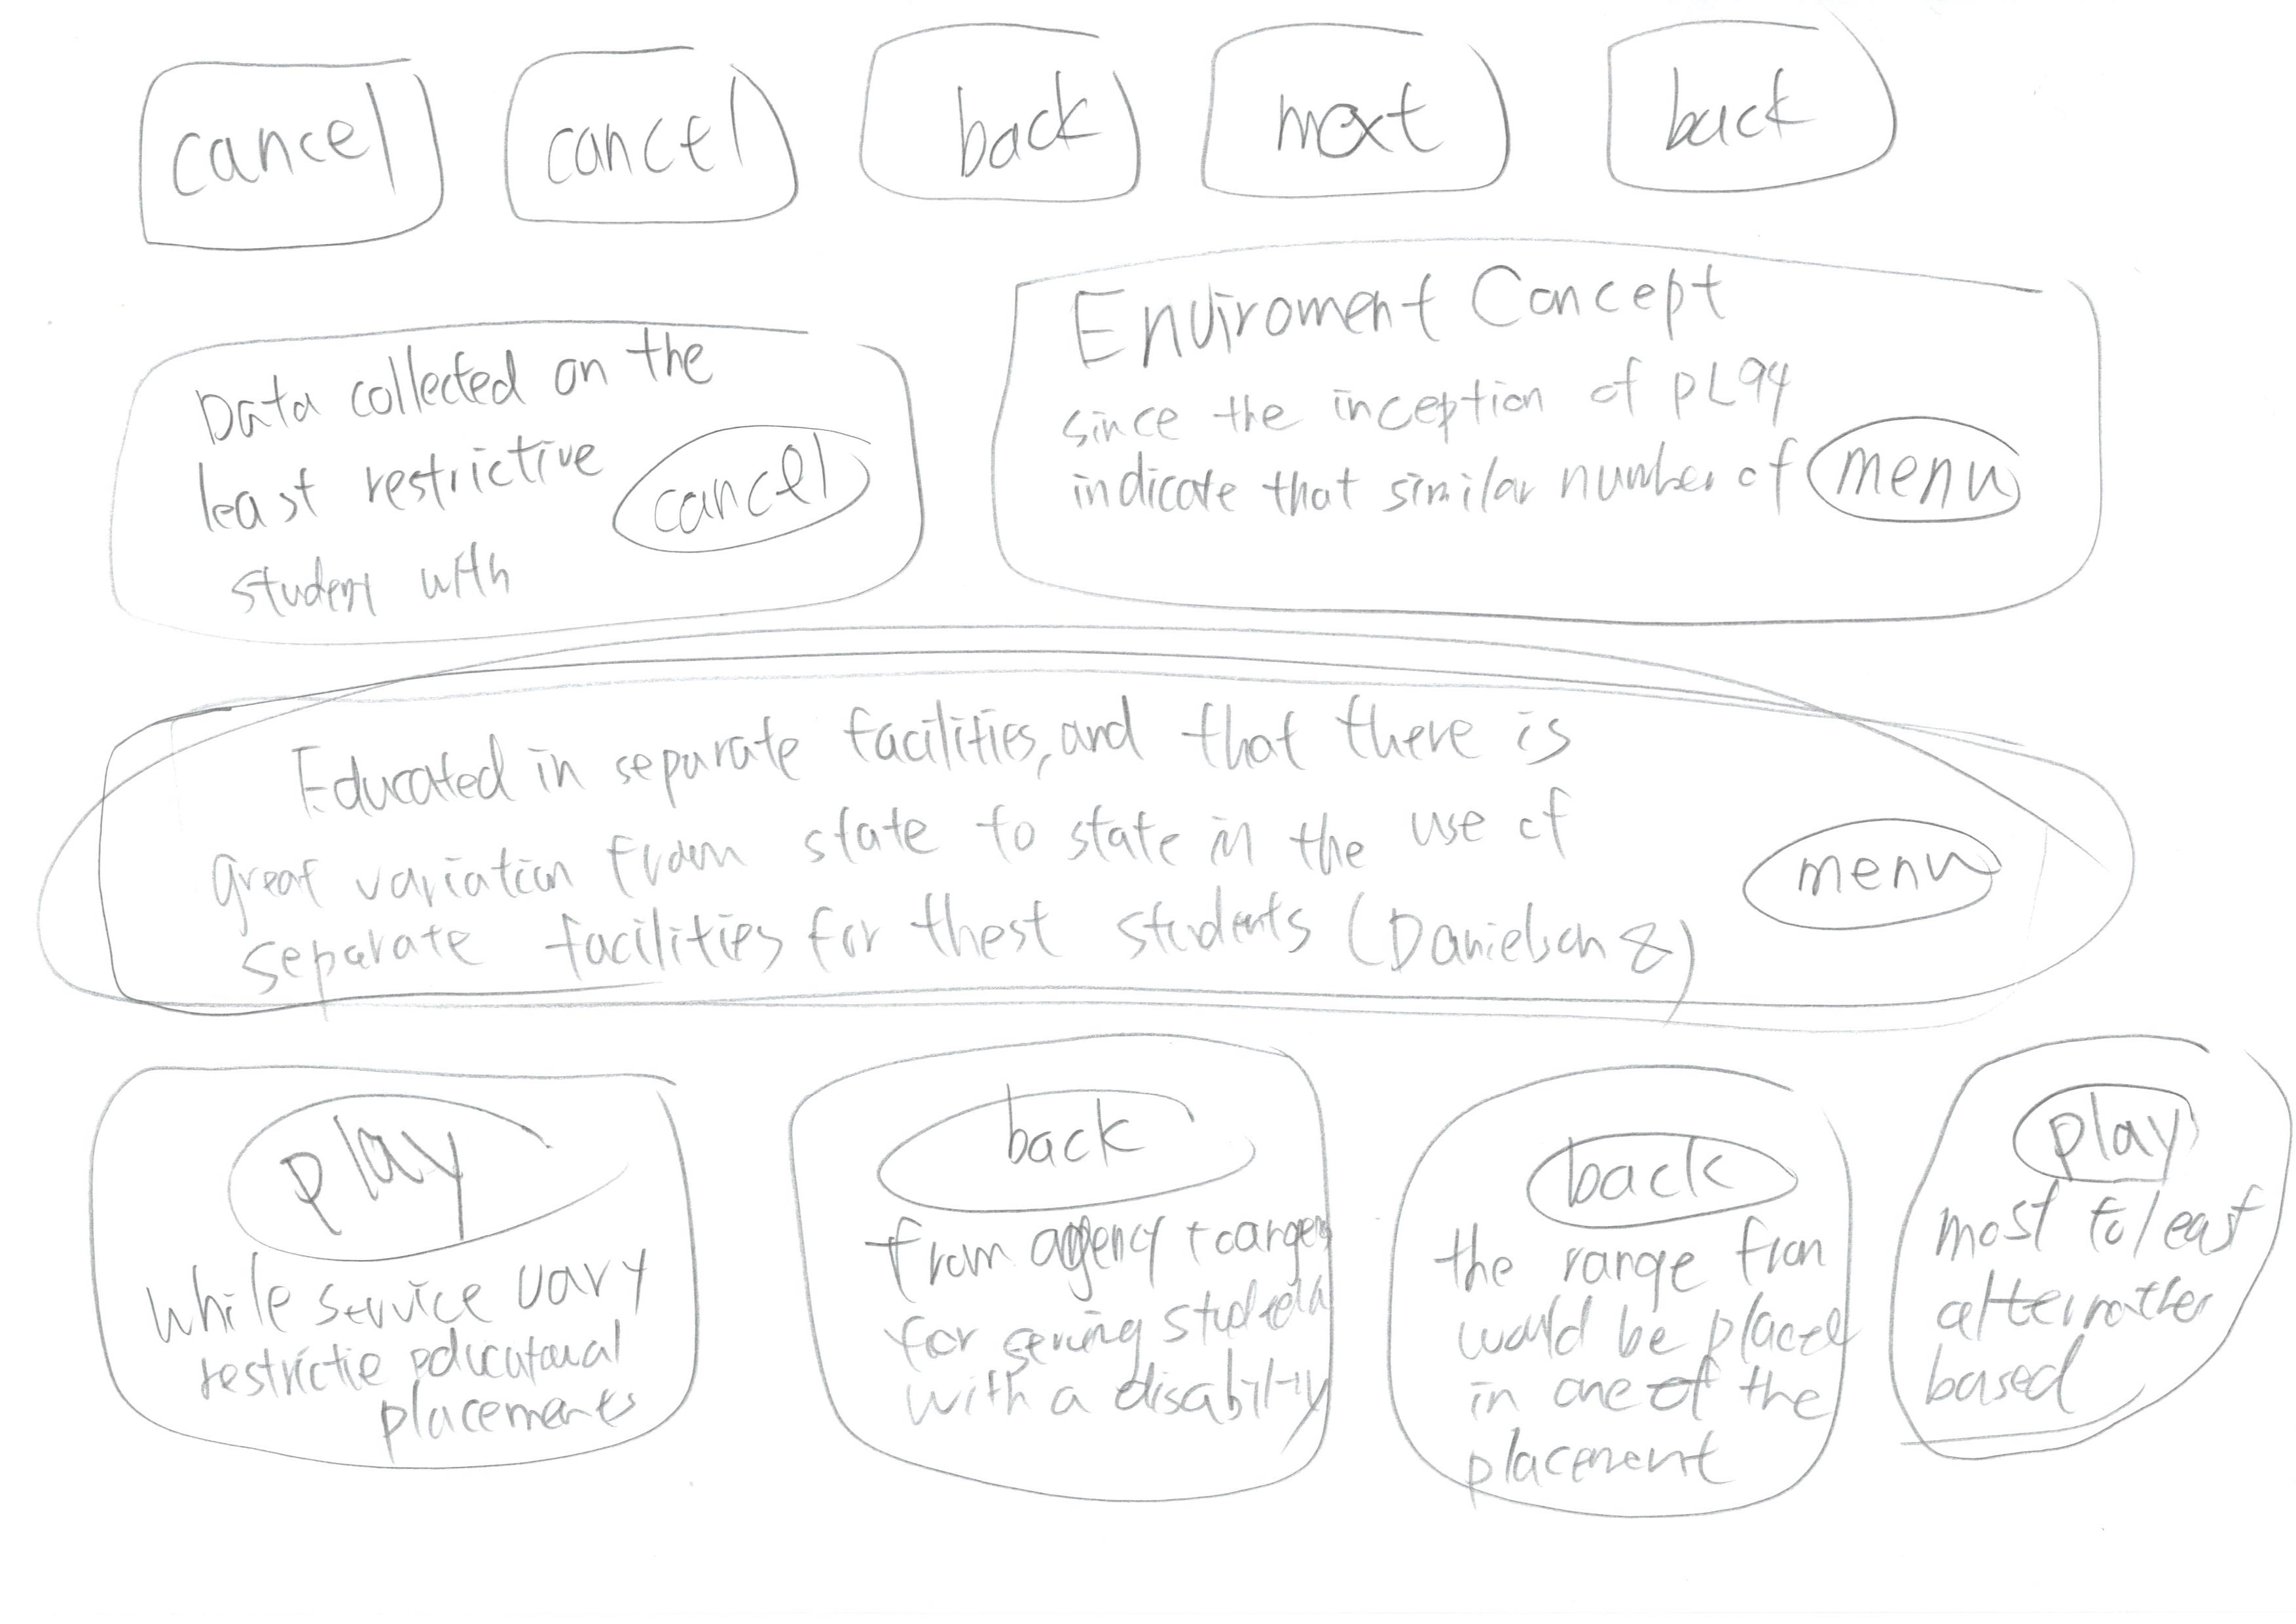 cancel
cancel
back
next
back
Data collected on the
least restrictive
cancel
student with
Enviroment Concept
since the inception of PL94
indicate that similar number of
menu
Educated in separate facilities, and that there is
great variation from state to state in the use of
separate facilities for thest students (Danielson &)
menu
play
while service vary
restrictie educational
placements
back
from agency
for serving
with a disability
back
the range from
would be placed
in one of the
placement
play
most to least
based